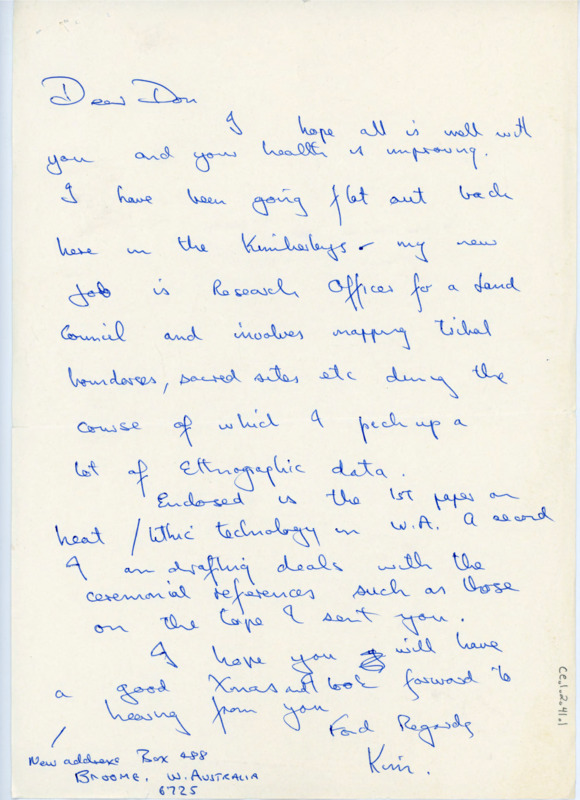 Dear Don
I hope all is well with
you and your health is improving.
I have been going flat out back
here in the Kimberleys - my new
job is Research Officer for a Land
Council and involves mapping tribal
boundarses, sacred sites etc during the
course of which I pick up a
lot of Ethnographic data.
Enclosed is the 1st paper on
heat / lithic technology in W.A. A second
I am drafting deals with the
ceremonial references such as those
on the tape I sent you.
I hope you will have
a good Xmas and look forward to
hearing from you
Fond Regards
Kim.
New address Box 488
BROOME, W. AUSTRALIA
6725
CE.1.2.41.1